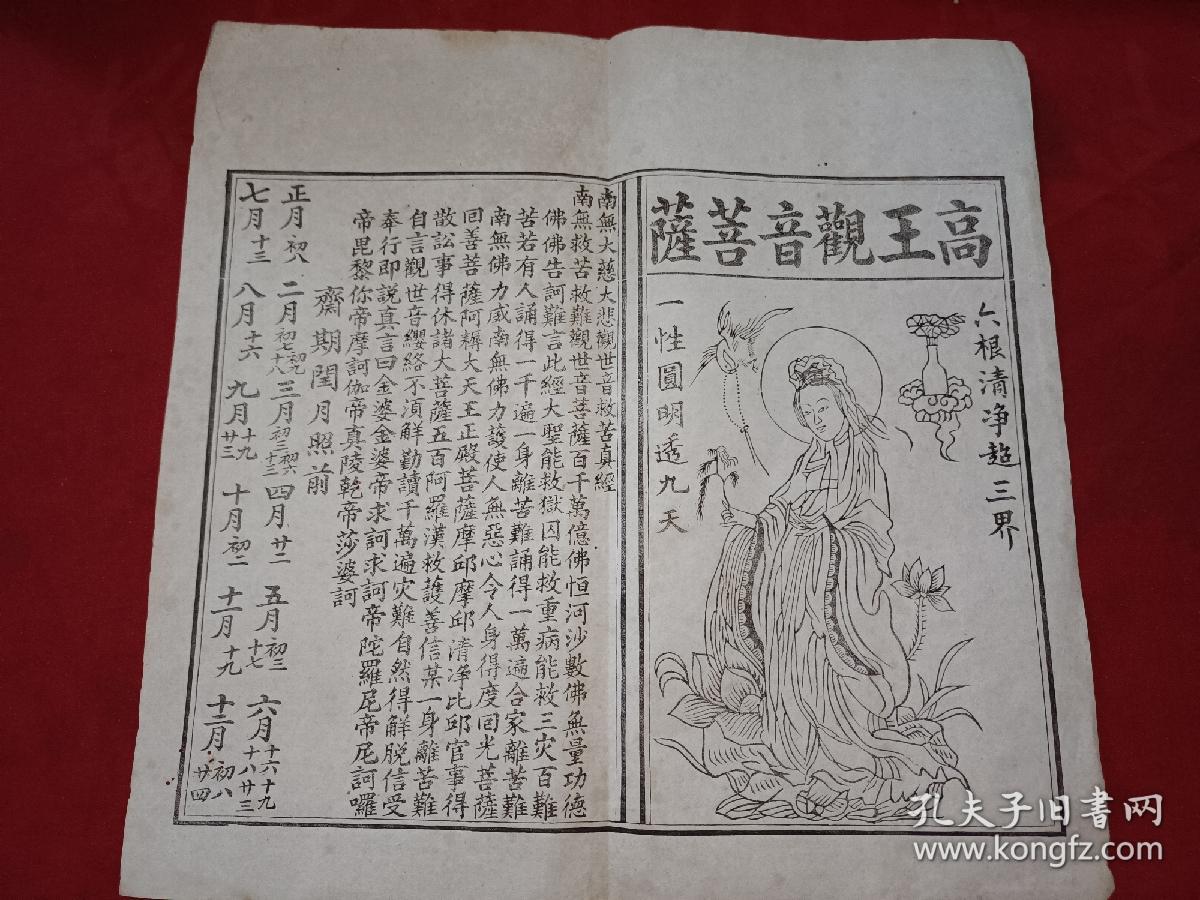 高王觀音菩薩
六根清净超三界
一性圓明透九天
南無大慈大悲觀世音救苦真經
南無救苦救難觀世音菩薩百千萬億佛恒河沙數佛無量功德
佛佛告訶難言此經大聖能救獄囚能救重病能救三灾百難
苦若有人誦得一千遍一身離苦難誦得一萬遍合家離苦難
南無佛力威南無佛力護使人無惡心令人身得度回光菩薩
回善菩薩阿耨大天王正殿菩薩摩邱摩邱清净比邱官事得
散訟事得休諸大菩薩五百阿羅漢救護善信某一身離苦難
自言觀世音纓絡不湏解勤讀千萬遍灾難自然得解脱信受
奉行即説真言曰金婆金婆帝求訶求訶帝陀羅尼帝尼訶囉
帝毘黎你帝摩訶伽帝真陵乾帝莎婆訶
齋期閏月照前
正月初八 二月初七初九十八 三月初三初六十三 四月廿二 五月初三十七 六月十六十九十八廿三
七月十三 八月十六 九月十九廿三 十月初二 十一月十九 十二月初八廿四
孔夫子旧书网
www.kongfz.com